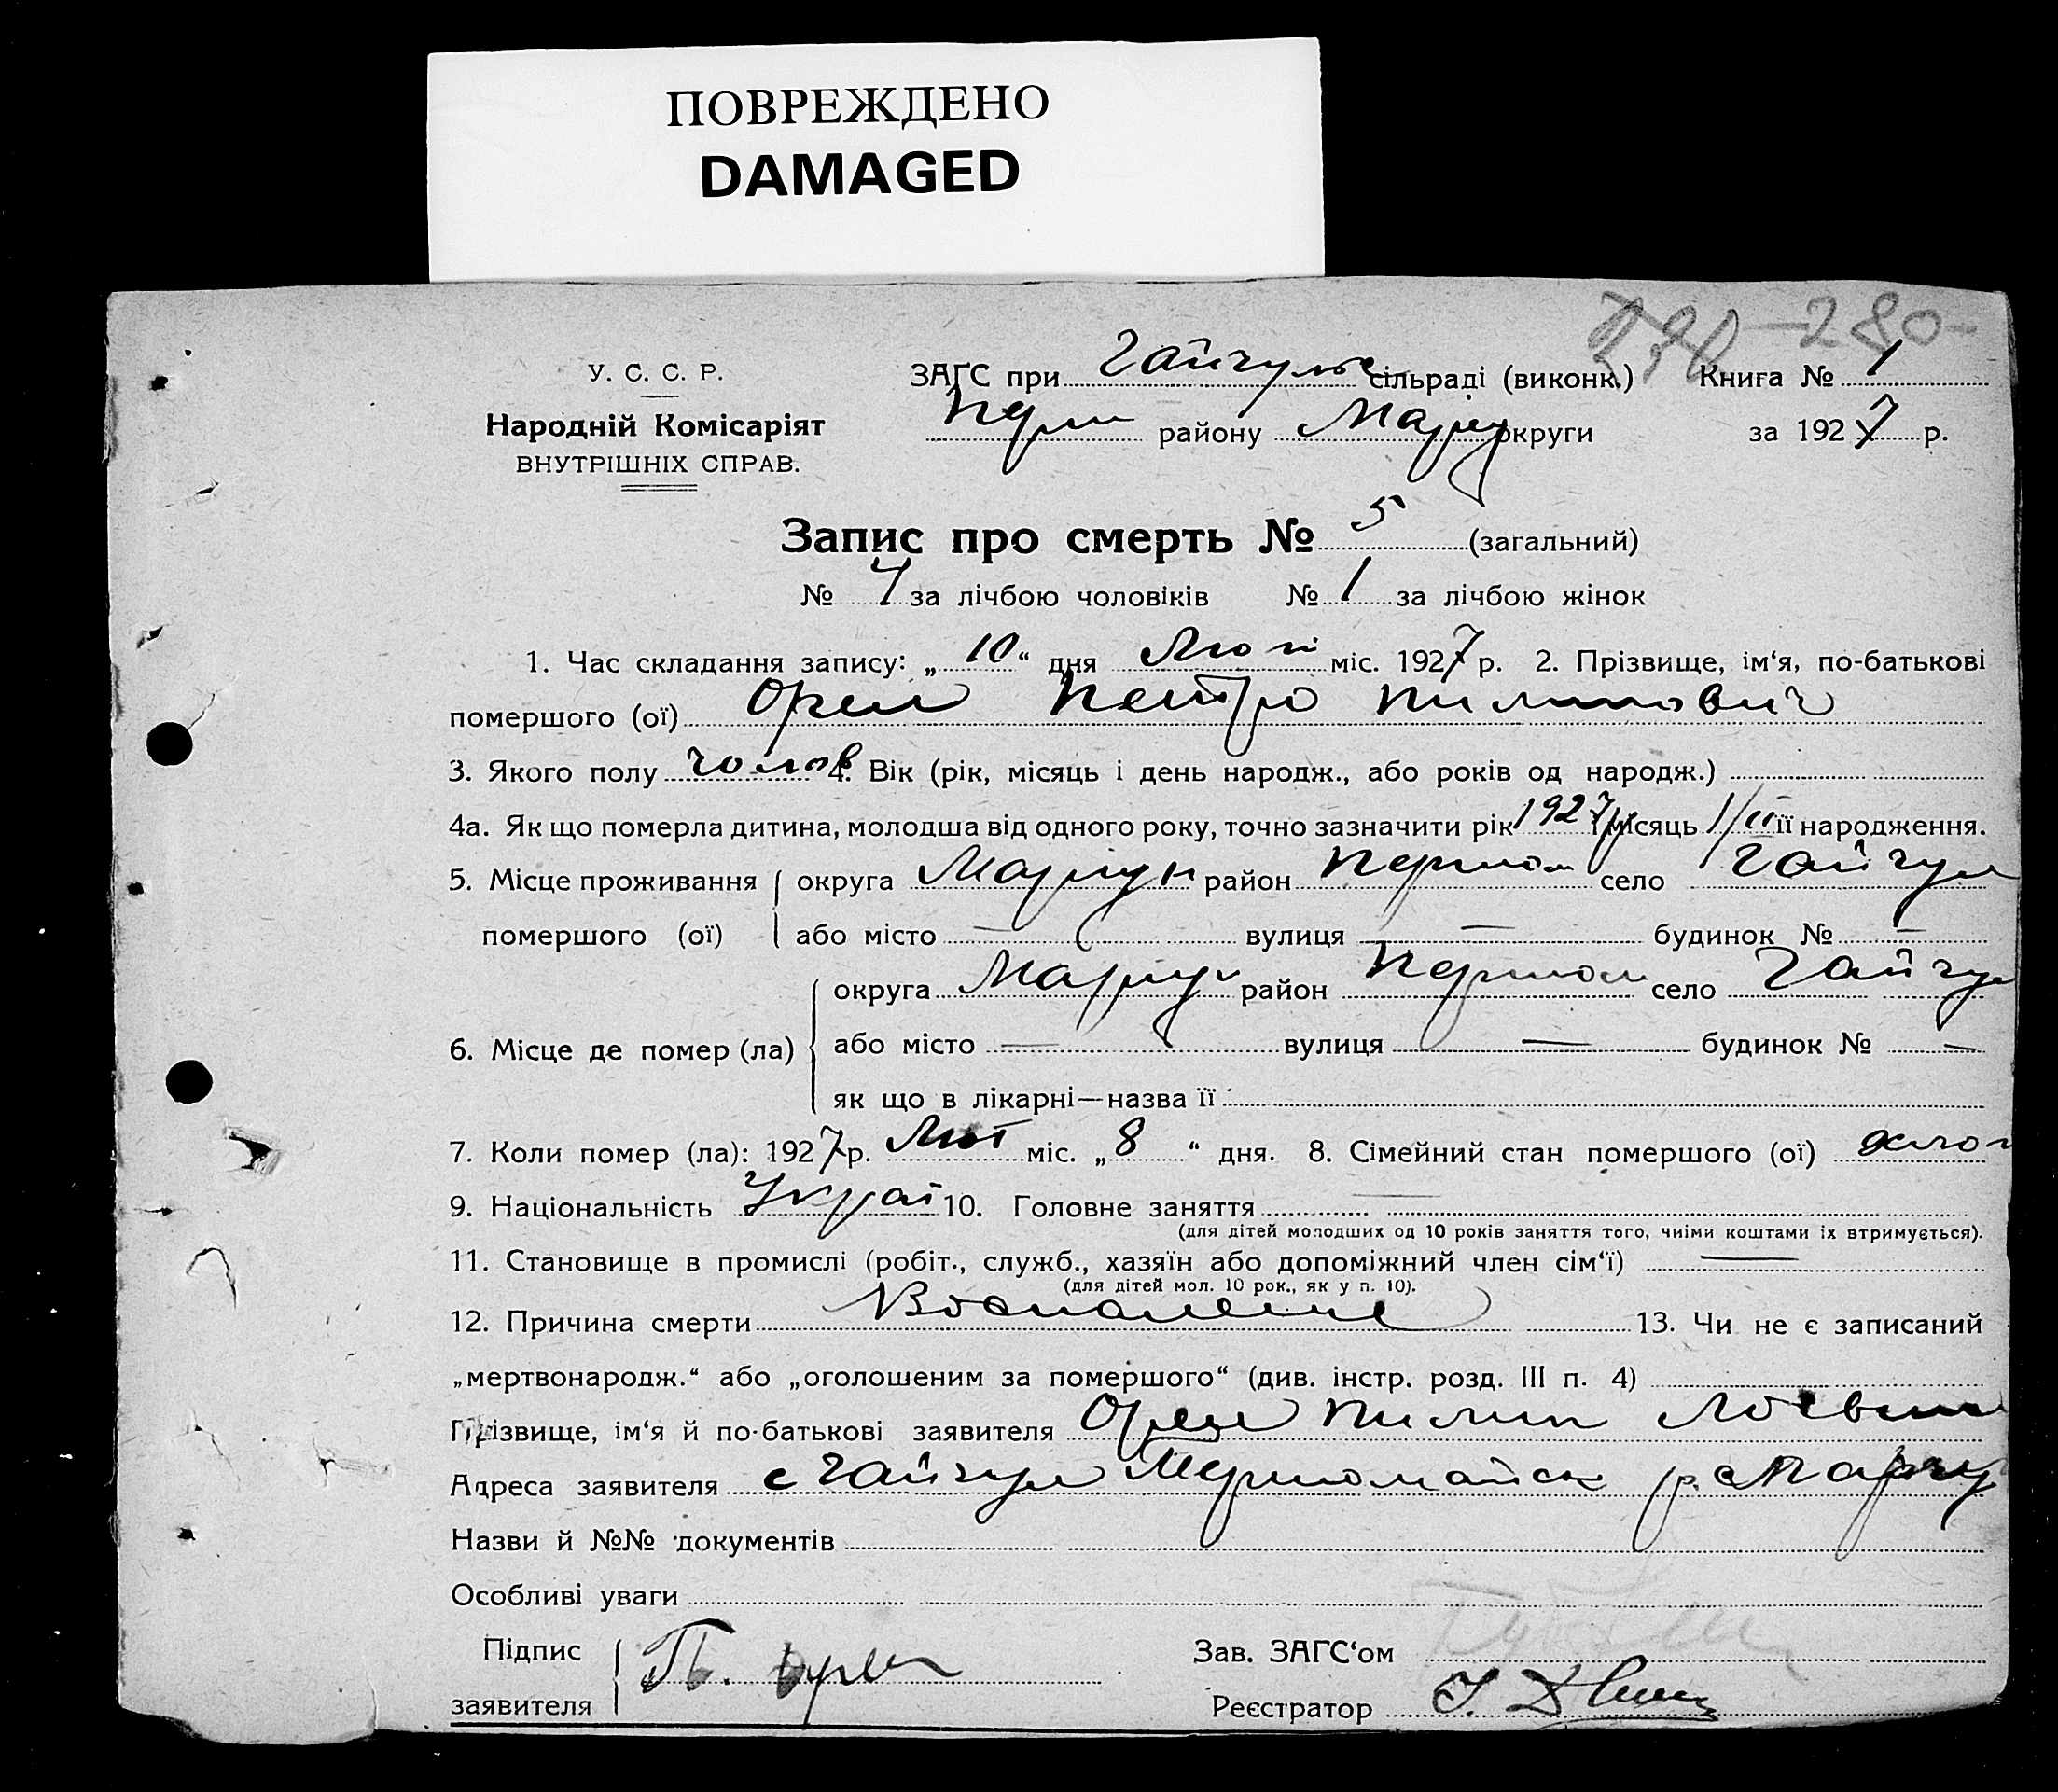 ПОВРЕЖДЕНО
DAMAGED
280
У. С. С. Р.
Народній Комісаріят
ВНУТРІШНІХ СПРАВ.
ЗАГС при Гайчульс сільраді (виконк.) Книга № 1
району Маріу округи за 1927 р.
Запис про смерть № 5 (загальний)
№ 4 за лічбою чоловіків № 1 за лічбою жінок
1. Час складання запису: „ 10 “ дня міс. 1927 р. 2. Прізвище, ім‘я, по-батькові
помершого (ої) Орел Петро Пилипович
3. Якого полу чолов 4. Вік (рік, місяць і день народж., або років од народж.)
4а. Як що померла дитина, молодша від одного року, точно зазначити рік 1927 і місяць її народження.
5. Місце проживання округа Маріуп район Першом село Гайчул
помершого (ої) або місто — вулиця — будинок № —
округа Маріуп район Першом село Гайчул
6. Місце де помер (ла) або місто — вулиця — будинок № —
як що в лікарні—назва її
7. Коли помер (ла): 1927 р. Лют міс. „ 8 “ дня. 8. Сімейний стан помершого (ої)
9. Національність Украї 10. Головне заняття —
(для дітей молодших од 10 років заняття того, чиїми коштами їх втримується).
11. Становище в промислі (робіт., служб., хазяїн або допоміжний член сім‘ї) —
(для дітей мол. 10 рок., як у п. 10).
12. Причина смерти Воспаление 13. Чи не є записаний
„мертвонародж.“ або „оголошеним за помершого“ (див. інстр. розд. III п. 4)
Прізвище, ім‘я й по-батькові заявителя Орел Пилип
Адреса заявителя с Гайчул Першомайск р. Маріу
Назви й №№ документів
Особливі уваги
Підпис Зав. ЗАГС‘ом
заявителя П. Орел Реєстратор